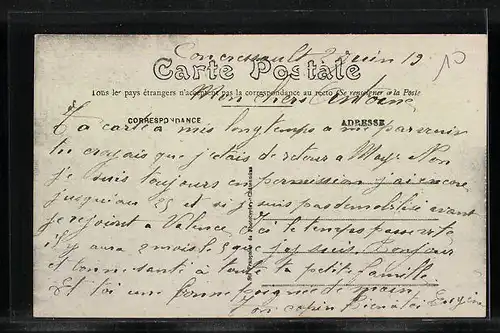 Concressault 2 Juin 19
10
Carte Postale
Tous les pays étrangers n'acceptent pas la correspondance au recto (Se renseigner à la Poste
Mon cher Antoine
CORRESPONDANCE ADRESSE
Ta carte a mis longtemps a me parvenir
tu croyais que j'etais de retour a Non
je suis toujours en permission j'ai encore
jusquau 25 et si je suis pas demobilisé avant
je rejoint a Valence Ici le temps passe vite
il y aura 2 mois le 9 que j'y suis. Bonjour
et bonne santé à toute ta petite famille
Et toi une bonne poignée de main
ton copin